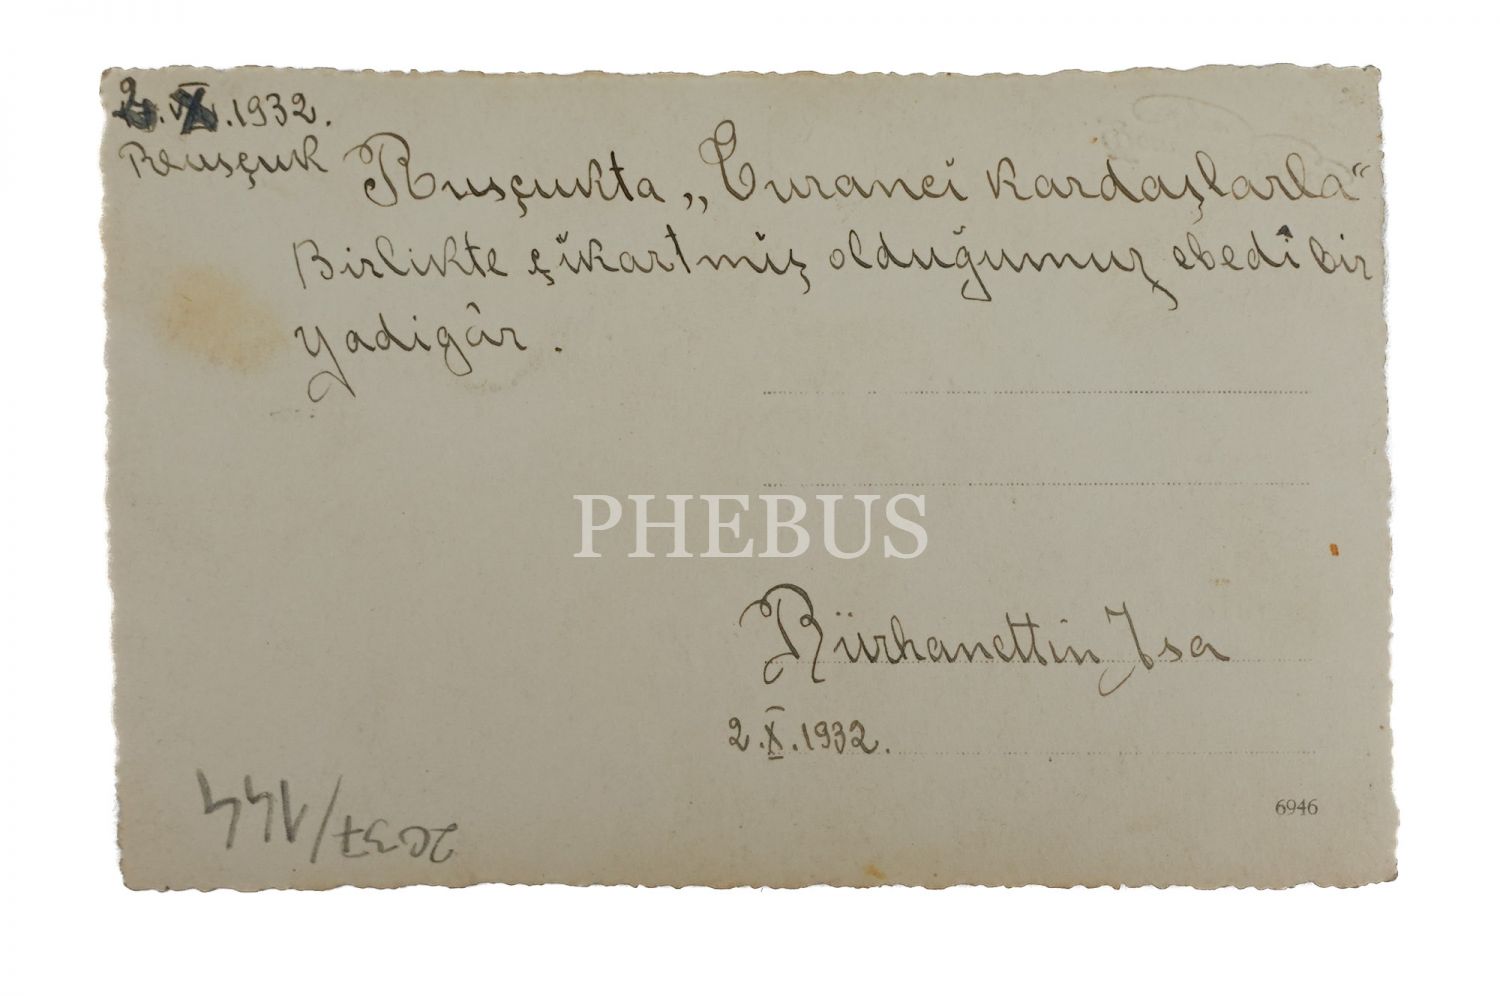 2.X.1932.
Rusçuk
Rusçukta „Turanci kardaşlarla“
Birlikte çikartmiş olduğumuz ebedî bir
yadigâr.
PHEBUS
Bürhanettin Isa
2.X.1932.
6946
2037/144